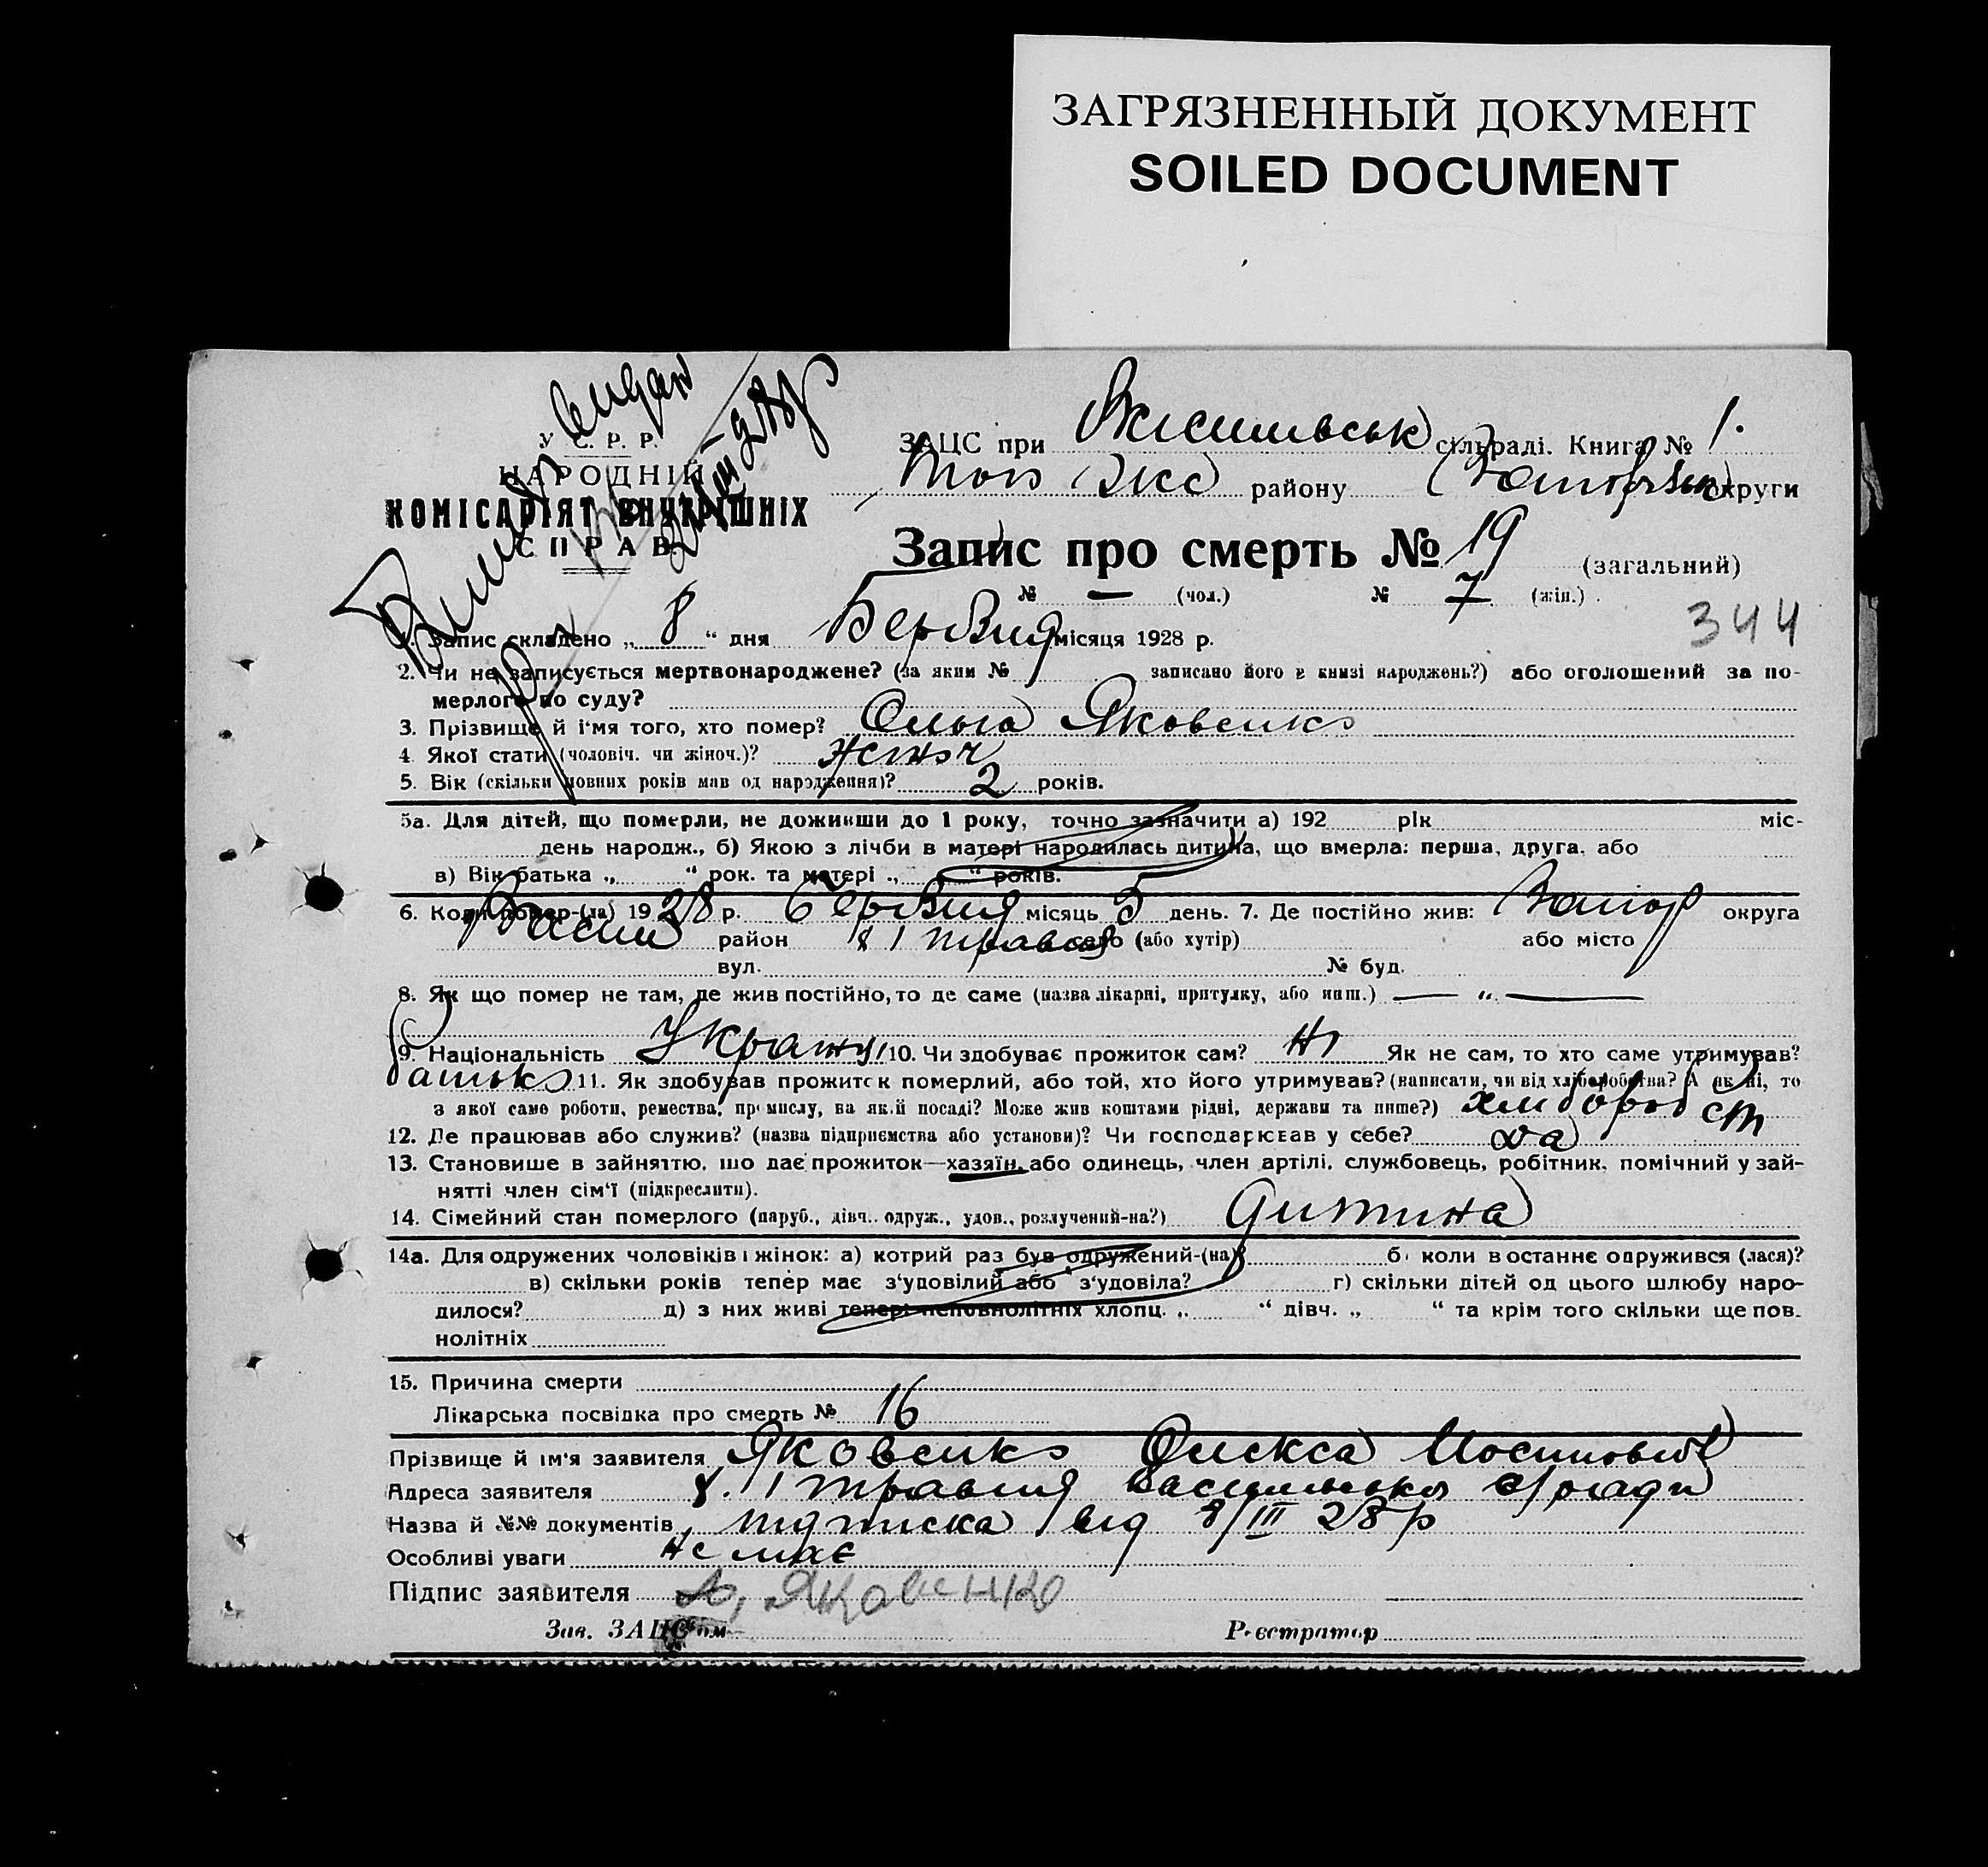 ЗАГРЯЗНЕННЫЙ ДОКУМЕНТ
SOILED DOCUMENT
У С. Р. Р.
НАРОДНІЙ
КОМІСАРІЯТ ВНУТРІШНІХ
СПРАВ
ЗАЦС при сільраді. Книга № 1.
району округи
Запис про смерть № 19 (загальний)
№ — (чол.) № 7 (жін.)
344
1. Запис складено „ 8 “ дня місяця 1928 р.
2. Чи не записується мертвонароджене? (за яким № записано його в книзі народжень?) або оголошений за по-
мерлого по суду?
3. Прізвище й і'мя того, хто помер? Ольга Яковенко
4 Якої стати (чоловіч. чи жіноч.)? жіноч
5. Вік (скільки повних років мав од народження)? 2 років.
5а. Для дітей, що померли, не доживши до 1 року, точно зазначити а) 192 рік міс-
день народж., б) Якою з лічби в матері народилась дитина, що вмерла: перша, друга, або
в) Вік батька „ “ рок. та матері „ “ років.
6. Коли помер-(ла) 1928 р. місяць 5 день. 7. Де постійно жив: Запор округа
Васил район 1 травня село (або хутір) або місто
вул. № буд.
8. Як що помер не там, де жив постійно, то де саме (назва лікарні, притулку, або инш.) — „ —
9. Національність 10. Чи здобуває прожиток сам? Ні Як не сам, то хто саме утримував?
батько 11. Як здобував прожиток померлий, або той, хто його утримував? (написати, чи від хліборобства? А як ні, то
з якої саме роботи, ремества, промислу, на якій посаді? Може жив коштами рідні, держави та инше?) хліборобст
12. Де працював або служив? (назва підприємства або установи)? Чи господарював у себе? да
13. Становище в зайняттю, що дає прожиток—хазяїн, або одинець, член артілі, службовець, робітник, помічний у зай-
нятті член сім'ї (підкреслити).
14. Сімейний стан померлого (паруб., дівч., одруж., удов., розлучений-на?) дитина
14а. Для одружених чоловіків і жінок: а) котрий раз був одружений-(на)? б) коли в останнє одружився (лася)?
в) скільки років тепер має з'удовілий або з'удовіла? г) скільки дітей од цього шлюбу наро-
дилося? д) з них живі тепер: неповнолітніх хлопц. „ “ дівч. „ “ та крім того скільки ще пов-
нолітніх
15. Причина смерти
Лікарська посвідка про смерть № 16
Прізвище й ім'я заявителя Яковенко Олекса Иосипович
Адреса заявителя 1 травня
Назва й №№ документів підписка від 8/III 28 р
Особливі уваги немає
Підпис заявителя Яковенко
Зав. ЗАЦС'ом Реєстратор